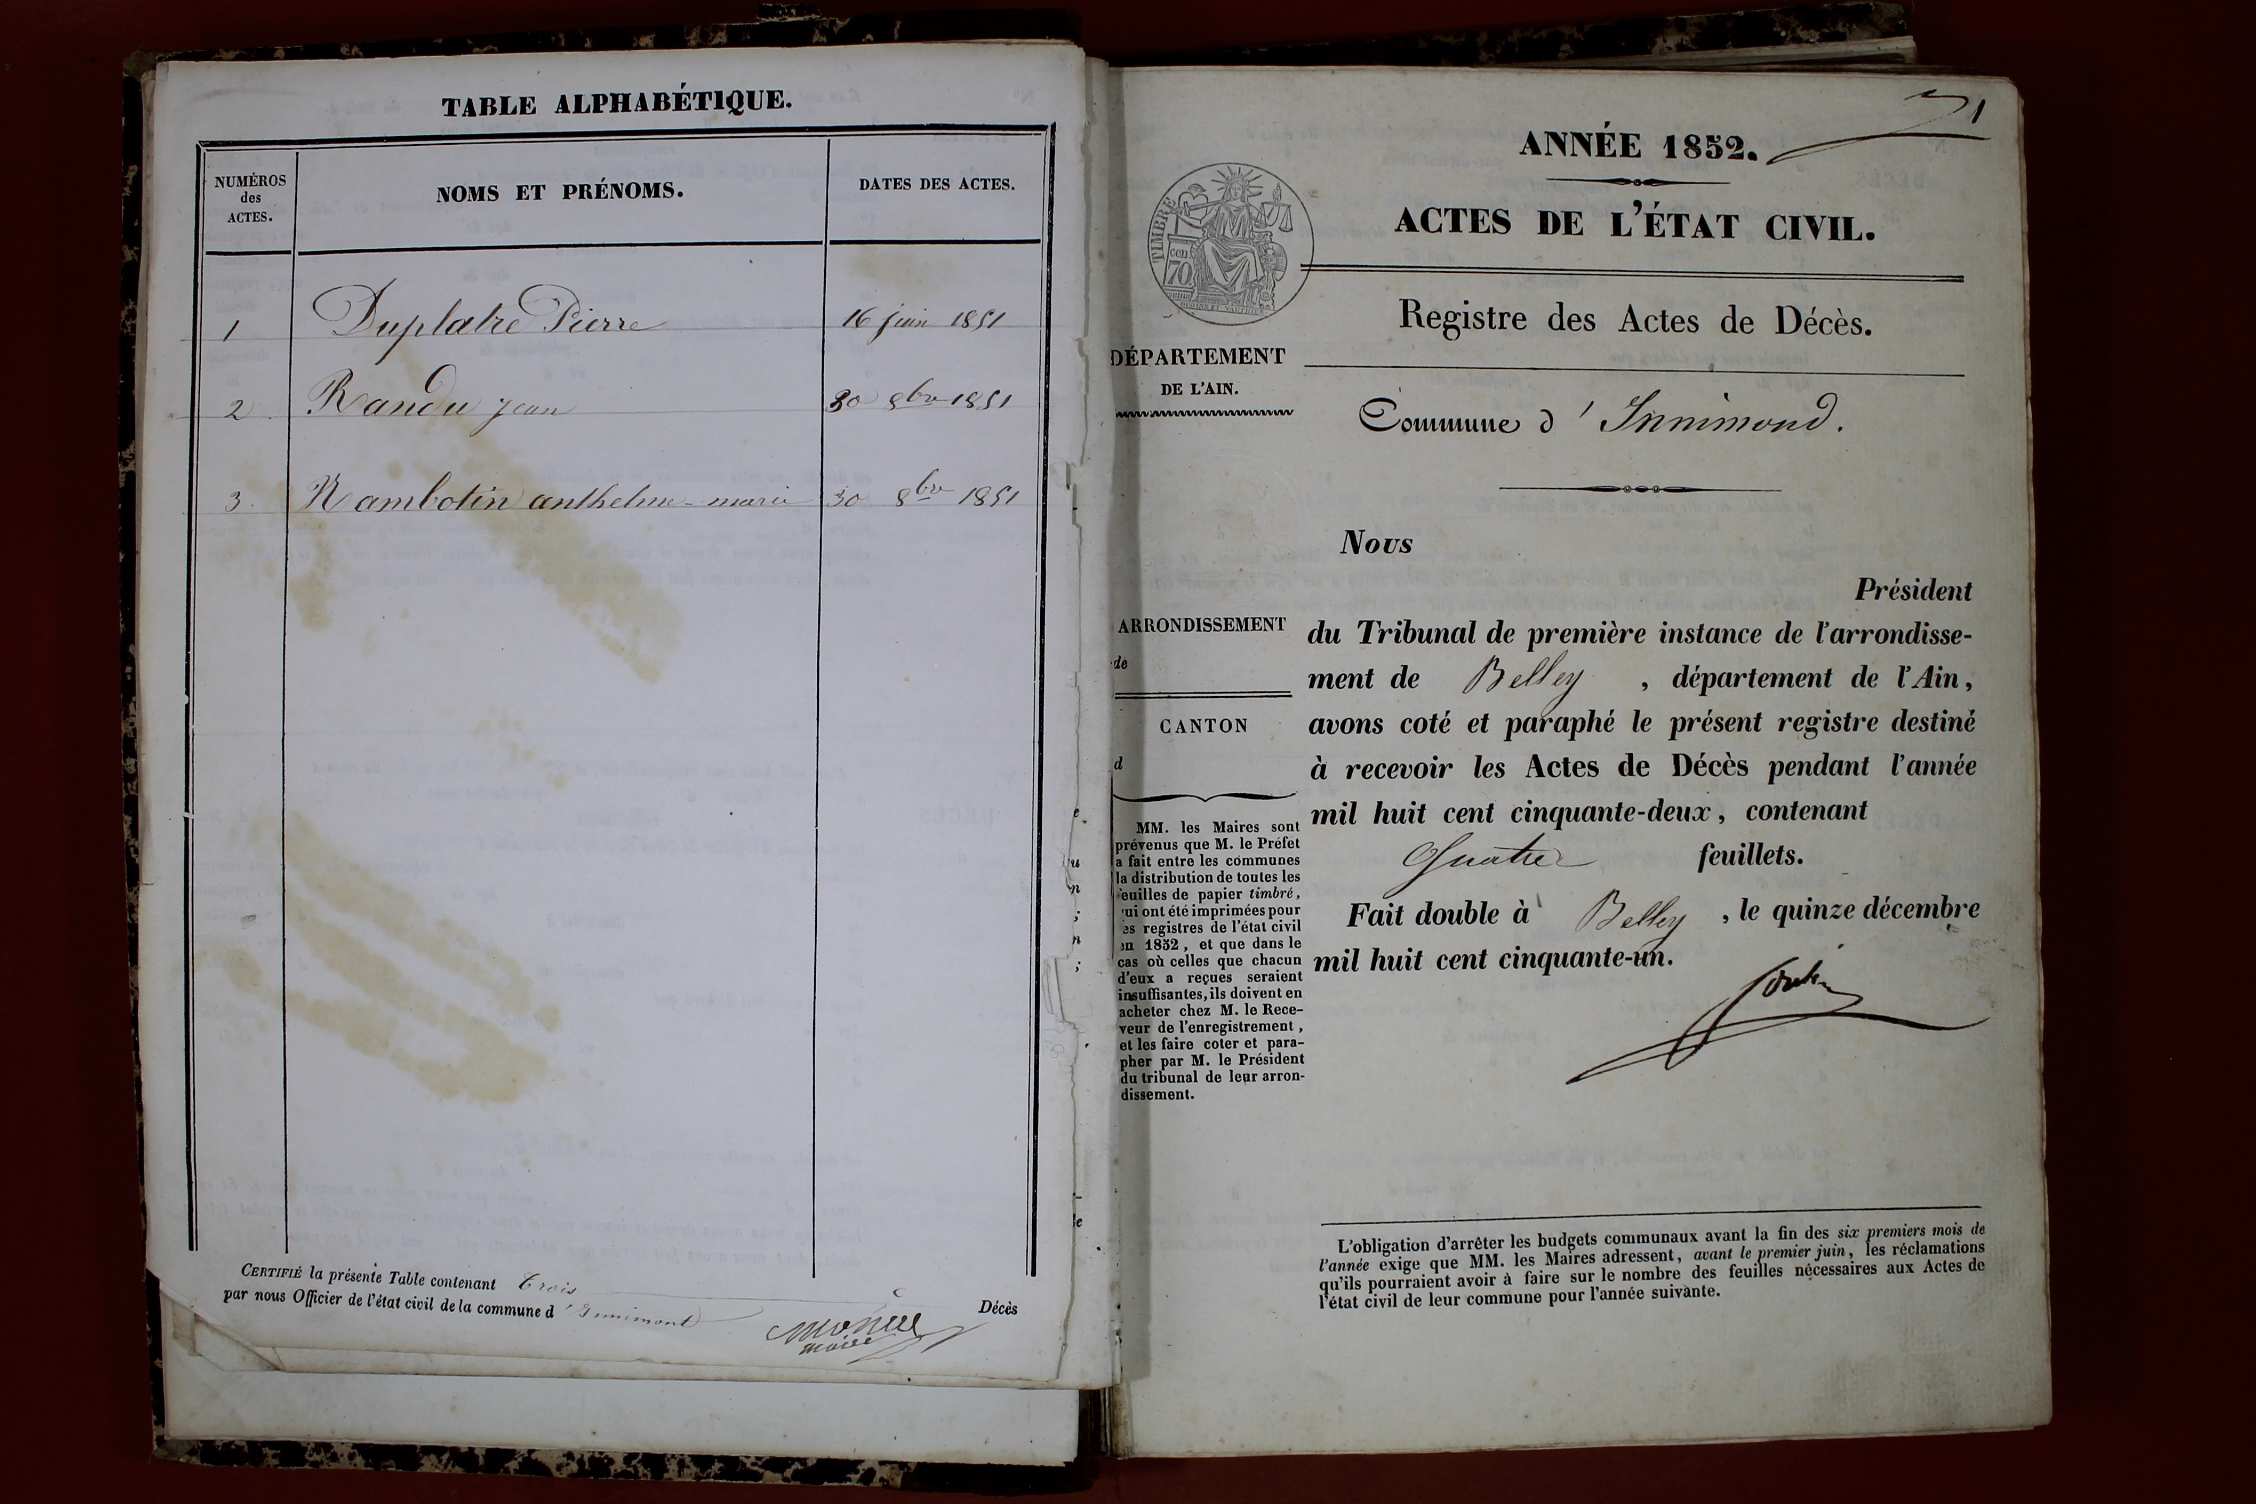 TABLE ALPHABÉTIQUE.
NUMÉROS
des
ACTES.
NOMS ET PRÉNOMS.
DATES DES ACTES.
1 Duplatre Pierre 16 juin 1851
2 Randu jean 30 8bre 1851
3. Rambotin anthelme-marie 30 8bre 1851
CERTIFIÉ la présente Table contenant trois Décès
par nous Officier de l'état civil de la commune d'Innimont
maire
1
ANNÉE 1852.
ACTES DE L'ÉTAT CIVIL.
TIMBRE
70
Registre des Actes de Décès.
DÉPARTEMENT
DE L'AIN.
Commune d'Innimond.
ARRONDISSEMENT
de
CANTON
d
MM. les Maires sont
prévenus que M. le Préfet
a fait entre les communes
la distribution de toutes les
feuilles de papier timbré,
qui ont été imprimées pour
les registres de l'état civil
en 1852, et que dans le
cas où celles que chacun
d'eux a reçues seraient
insuffisantes, ils doivent en
acheter chez M. le Rece-
veur de l'enregistrement,
et les faire coter et para-
pher par M. le Président
du tribunal de leur arron-
dissement.
Nous
Président
du Tribunal de première instance de l'arrondisse-
ment de Belley, département de l'Ain,
avons coté et paraphé le présent registre destiné
à recevoir les Actes de Décès pendant l'année
mil huit cent cinquante-deux, contenant
Quatre feuillets.
Fait double à Belley, le quinze décembre
mil huit cent cinquante-un.
L'obligation d'arrêter les budgets communaux avant la fin des six premiers mois de
l'année exige que MM. les Maires adressent, avant le premier juin, les réclamations
qu'ils pourraient avoir à faire sur le nombre des feuilles nécessaires aux Actes de
l'état civil de leur commune pour l'année suivante.